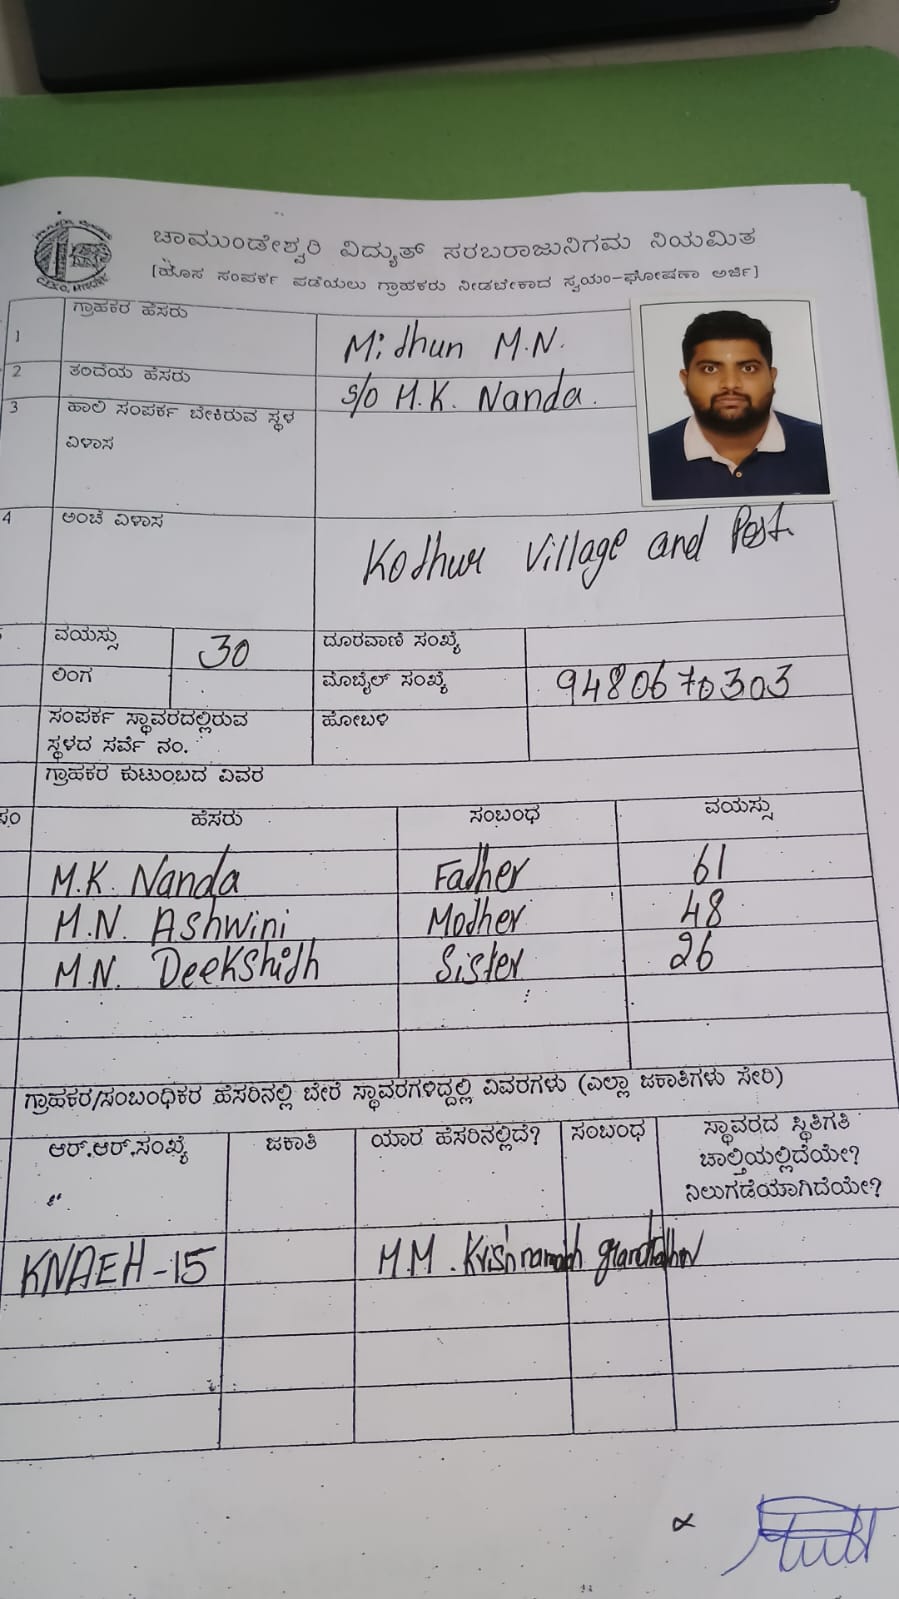 ಚಾಮುಂಡೇಶ್ವರಿ ವಿದ್ಯುತ್ ಸರಬರಾಜುನಿಗಮ ನಿಯಮಿತ
[ಹೊಸ ಸಂಪರ್ಕ ಪಡೆಯಲು ಗ್ರಾಹಕರು ನೀಡಬೇಕಾದ ಸ್ವಯಂ-ಘೋಷಣಾ ಅರ್ಜಿ]
1 ಗ್ರಾಹಕರ ಹೆಸರು Midhun M.N.
2 ತಂದೆಯ ಹೆಸರು S/o M.K. Nanda.
3 ಹಾಲಿ ಸಂಪರ್ಕ ಬೇಕಿರುವ ಸ್ಥಳ
ವಿಳಾಸ
4 ಅಂಚೆ ವಿಳಾಸ Kodhur Village and Post
ವಯಸ್ಸು 30 ದೂರವಾಣಿ ಸಂಖ್ಯೆ
ಲಿಂಗ ಮೊಬೈಲ್ ಸಂಖ್ಯೆ 9480670303
ಸಂಪರ್ಕ ಸ್ಥಾವರದಲ್ಲಿರುವ ಹೋಬಳಿ
ಸ್ಥಳದ ಸರ್ವೆ ನಂ.
ಗ್ರಾಹಕರ ಕುಟುಂಬದ ವಿವರ
ಹೆಸರು ಸಂಬಂಧ ವಯಸ್ಸು
M.K. Nanda Fadher 61
M.N. Ashwini Modher 48
M.N. Deekshidh Sister 26
ಗ್ರಾಹಕರ/ಸಂಬಂಧಿಕರ ಹೆಸರಿನಲ್ಲಿ ಬೇರೆ ಸ್ಥಾವರಗಳಿದ್ದಲ್ಲಿ ವಿವರಗಳು (ಎಲ್ಲಾ ಜಕಾತಿಗಳು ಸೇರಿ)
ಆರ್.ಆರ್.ಸಂಖ್ಯೆ ಜಕಾತಿ ಯಾರ ಹೆಸರಿನಲ್ಲಿದೆ? ಸಂಬಂಧ ಸ್ಥಾವರದ ಸ್ಥಿತಿಗತಿ
ಚಾಲ್ತಿಯಲ್ಲಿದೆಯೇ?
ನಿಲುಗಡೆಯಾಗಿದೆಯೇ?
KNAEH-15 M.M.